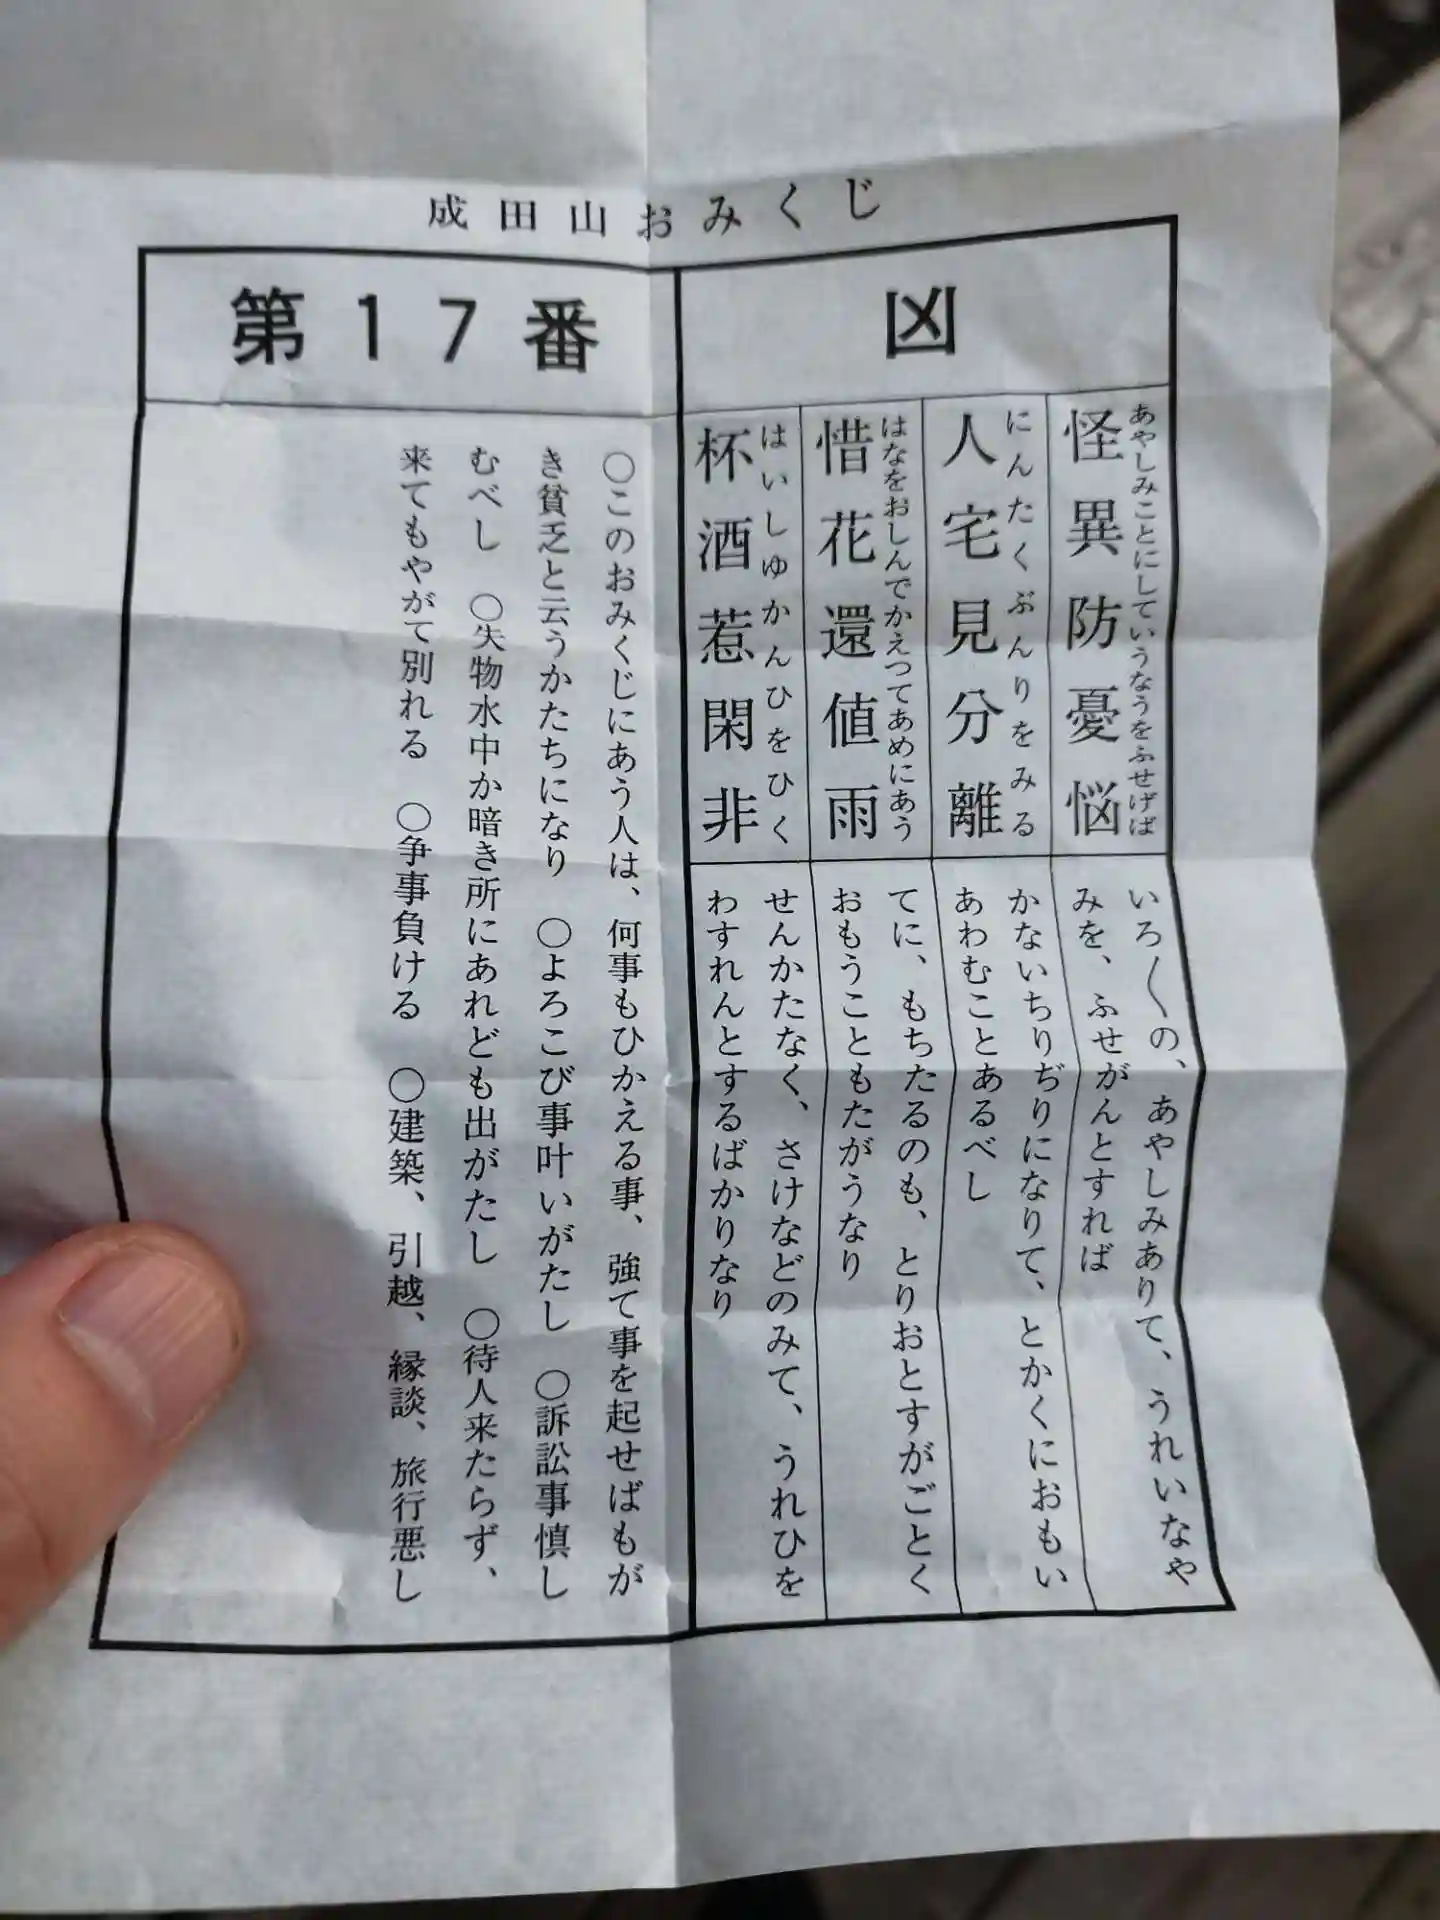 成田山おみくじ
凶
怪異防憂悩
あやしみことにしていうなうをふせげば
いろ〱の、あやしみありて、うれいなや
みを、ふせがんとすれば
人宅見分離
にんたくぶんりをみる
かないちりぢりになりて、とかくにおもい
あわむことあるべし
惜花還値雨
はなをおしんでかえつてあめにあう
てに、もちたるのも、とりおとすがごとく
おもうこともたがうなり
杯酒惹閑非
はいしゆかんひをひく
せんかたなく、さけなどのみて、うれひを
わすれんとするばかりなり
第17番
○このおみくじにあう人は、何事もひかえる事、強て事を起せばもが
き貧乏と云うかたちになり　○よろこび事叶いがたし　○訴訟事慎し
むべし　○失物水中か暗き所にあれども出がたし　○待人来たらず、
来てもやがて別れる　○争事負ける　○建築、引越、縁談、旅行悪し